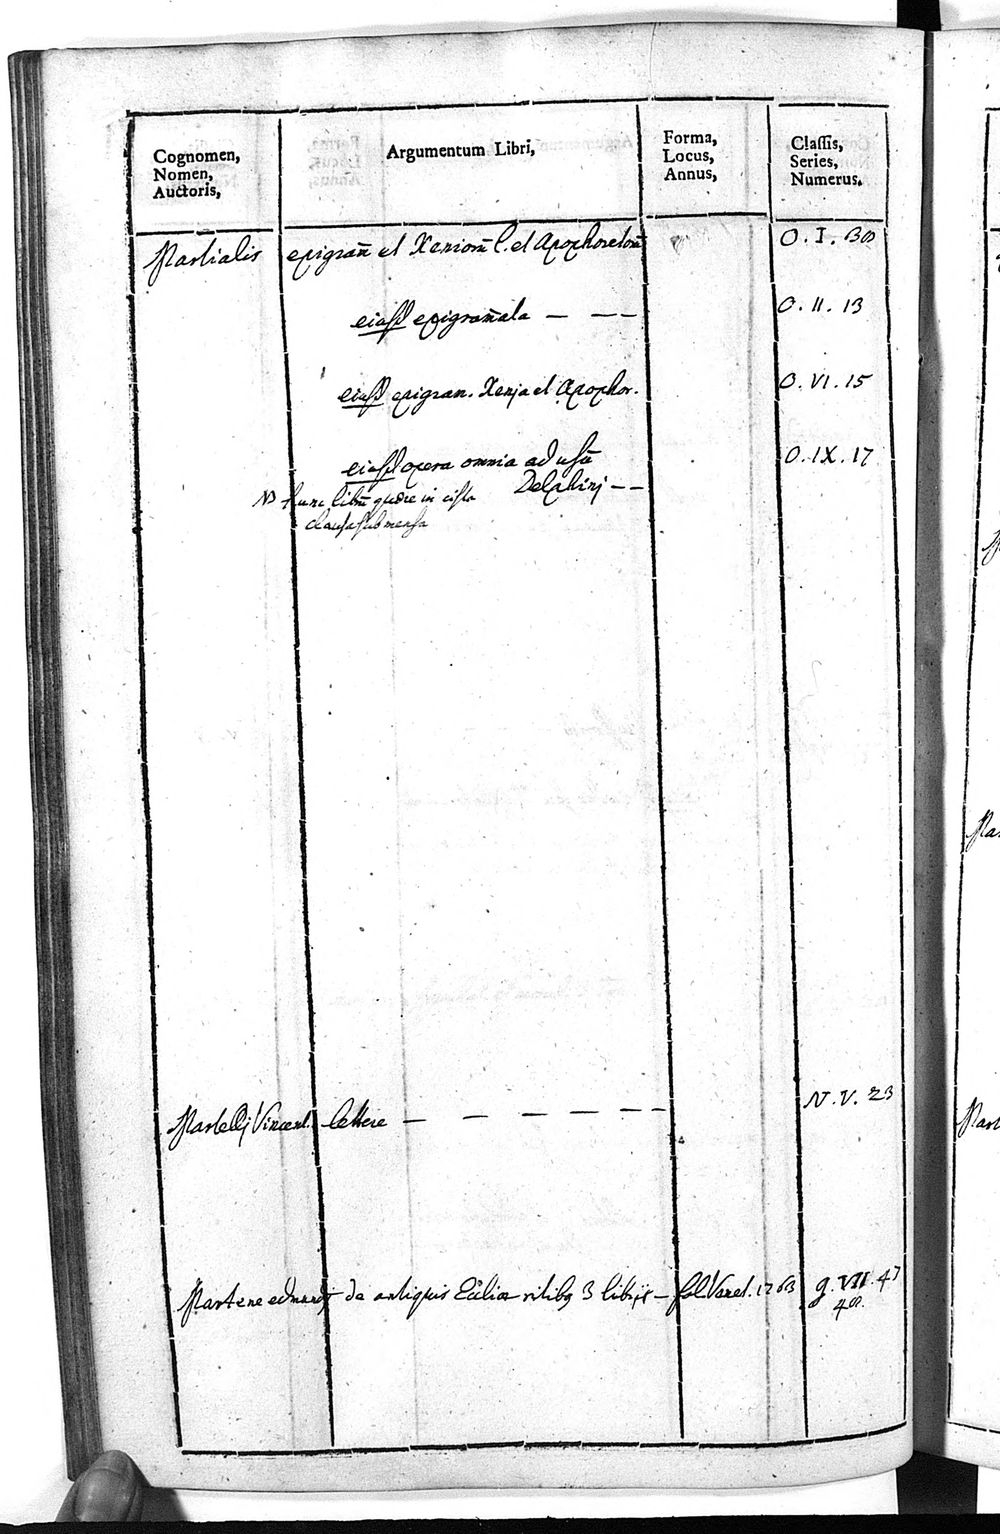 Cognomen,
Nomen,
Auctoris,
Argumentum Libri,
Forma,
Locus,
Annus,
Classis,
Series,
Numerus.
Martialis epigram̄ et Xeniorū l. et Apophoretorū O. I. 30
eiusd epigram̄ata — — — O. II. 13
eiusd epigram. Xenja et Apophor. O. VI. 15
eiusd opera omnia ad usū O. IX. 17
Delphinj — —
NB hunc librū quære in cista
clausa sub mensa
Martellj Vincent. lettere — — — — — N. V. 23
Martene edmundj de antiquis Ecclīæ ritibq 3 libris — fol. Venet. 1763 g. VII. 47
48.